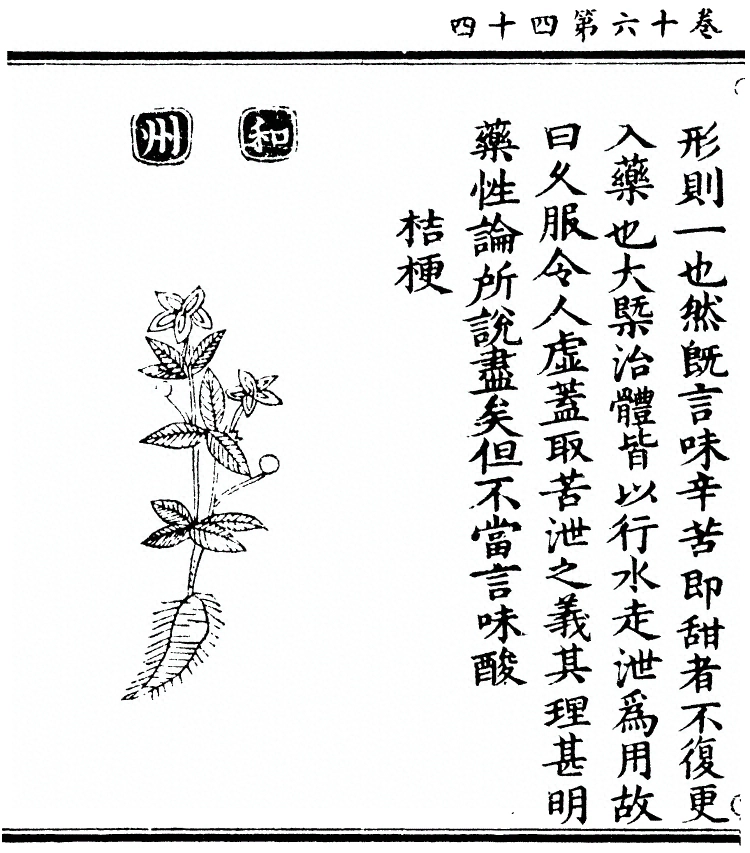 卷十六第四十四
形則一也然既言味辛苦即甜者不復更
入藥也大槩治體皆以行水走泄爲用故
曰久服令人虛蓋取苦泄之義其理甚明
藥性論所說盡矣但不當言味酸
桔梗
和州